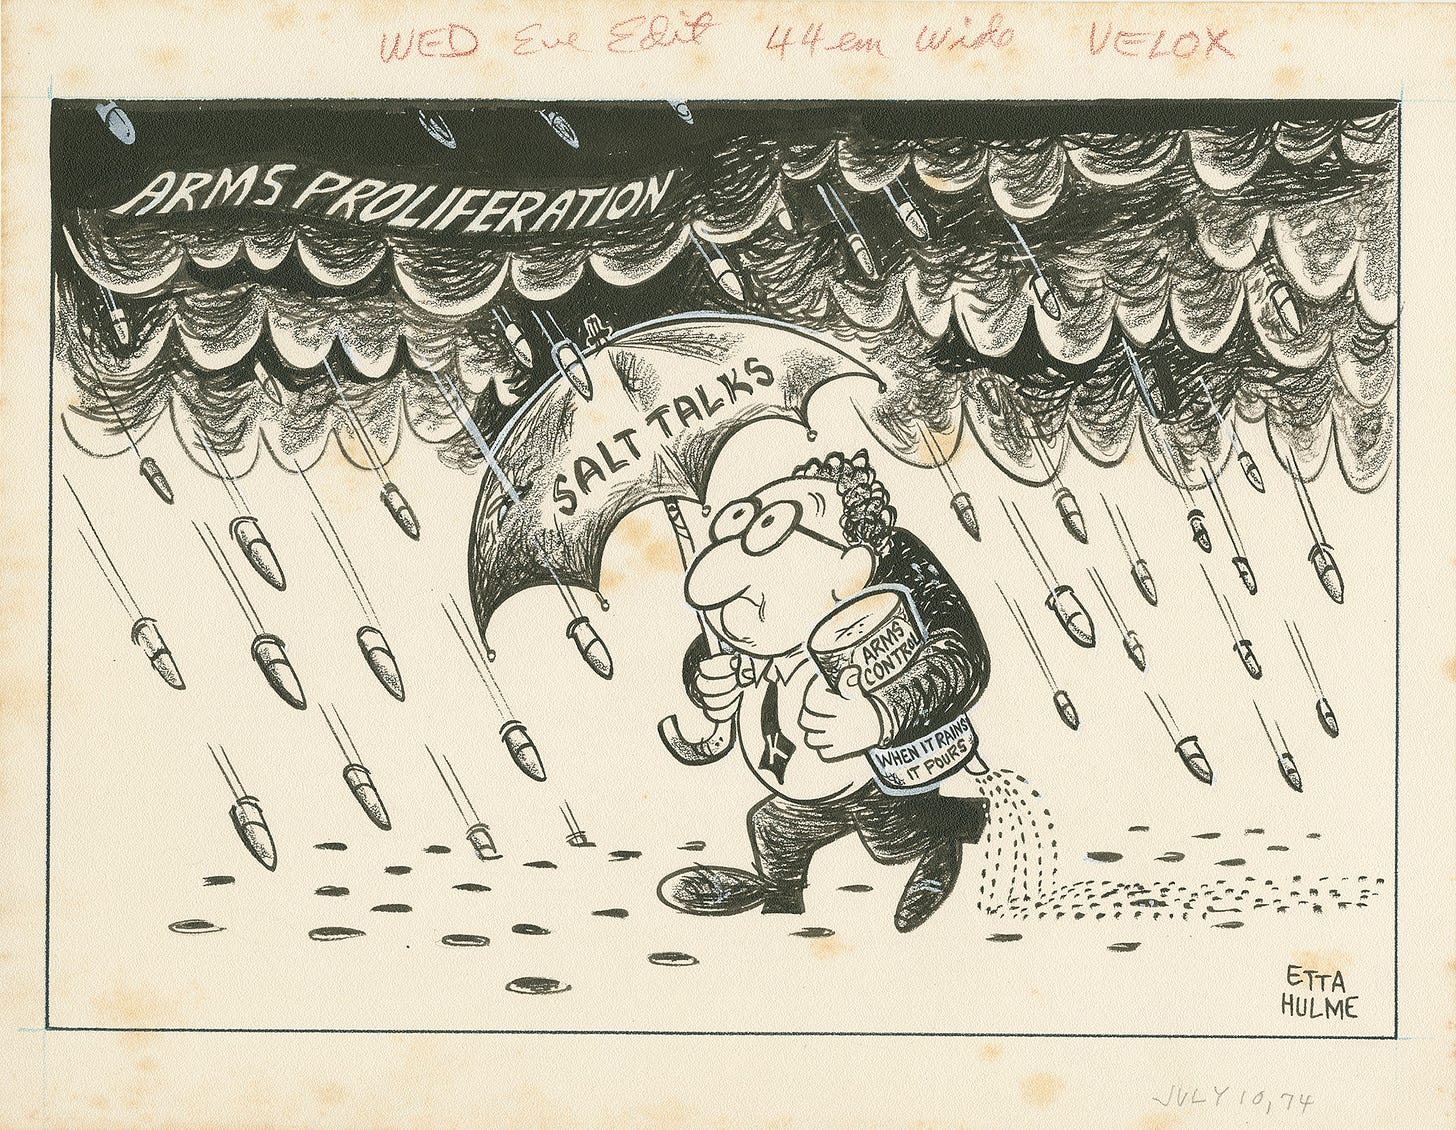 WED Eve Edit 44 em Wide VELOX
ARMS PROLIFERATION
SALT TALKS
ARMS
CONTROL
WHEN IT RAINS
IT POURS
K
ETTA
HULME
JULY 10, 74